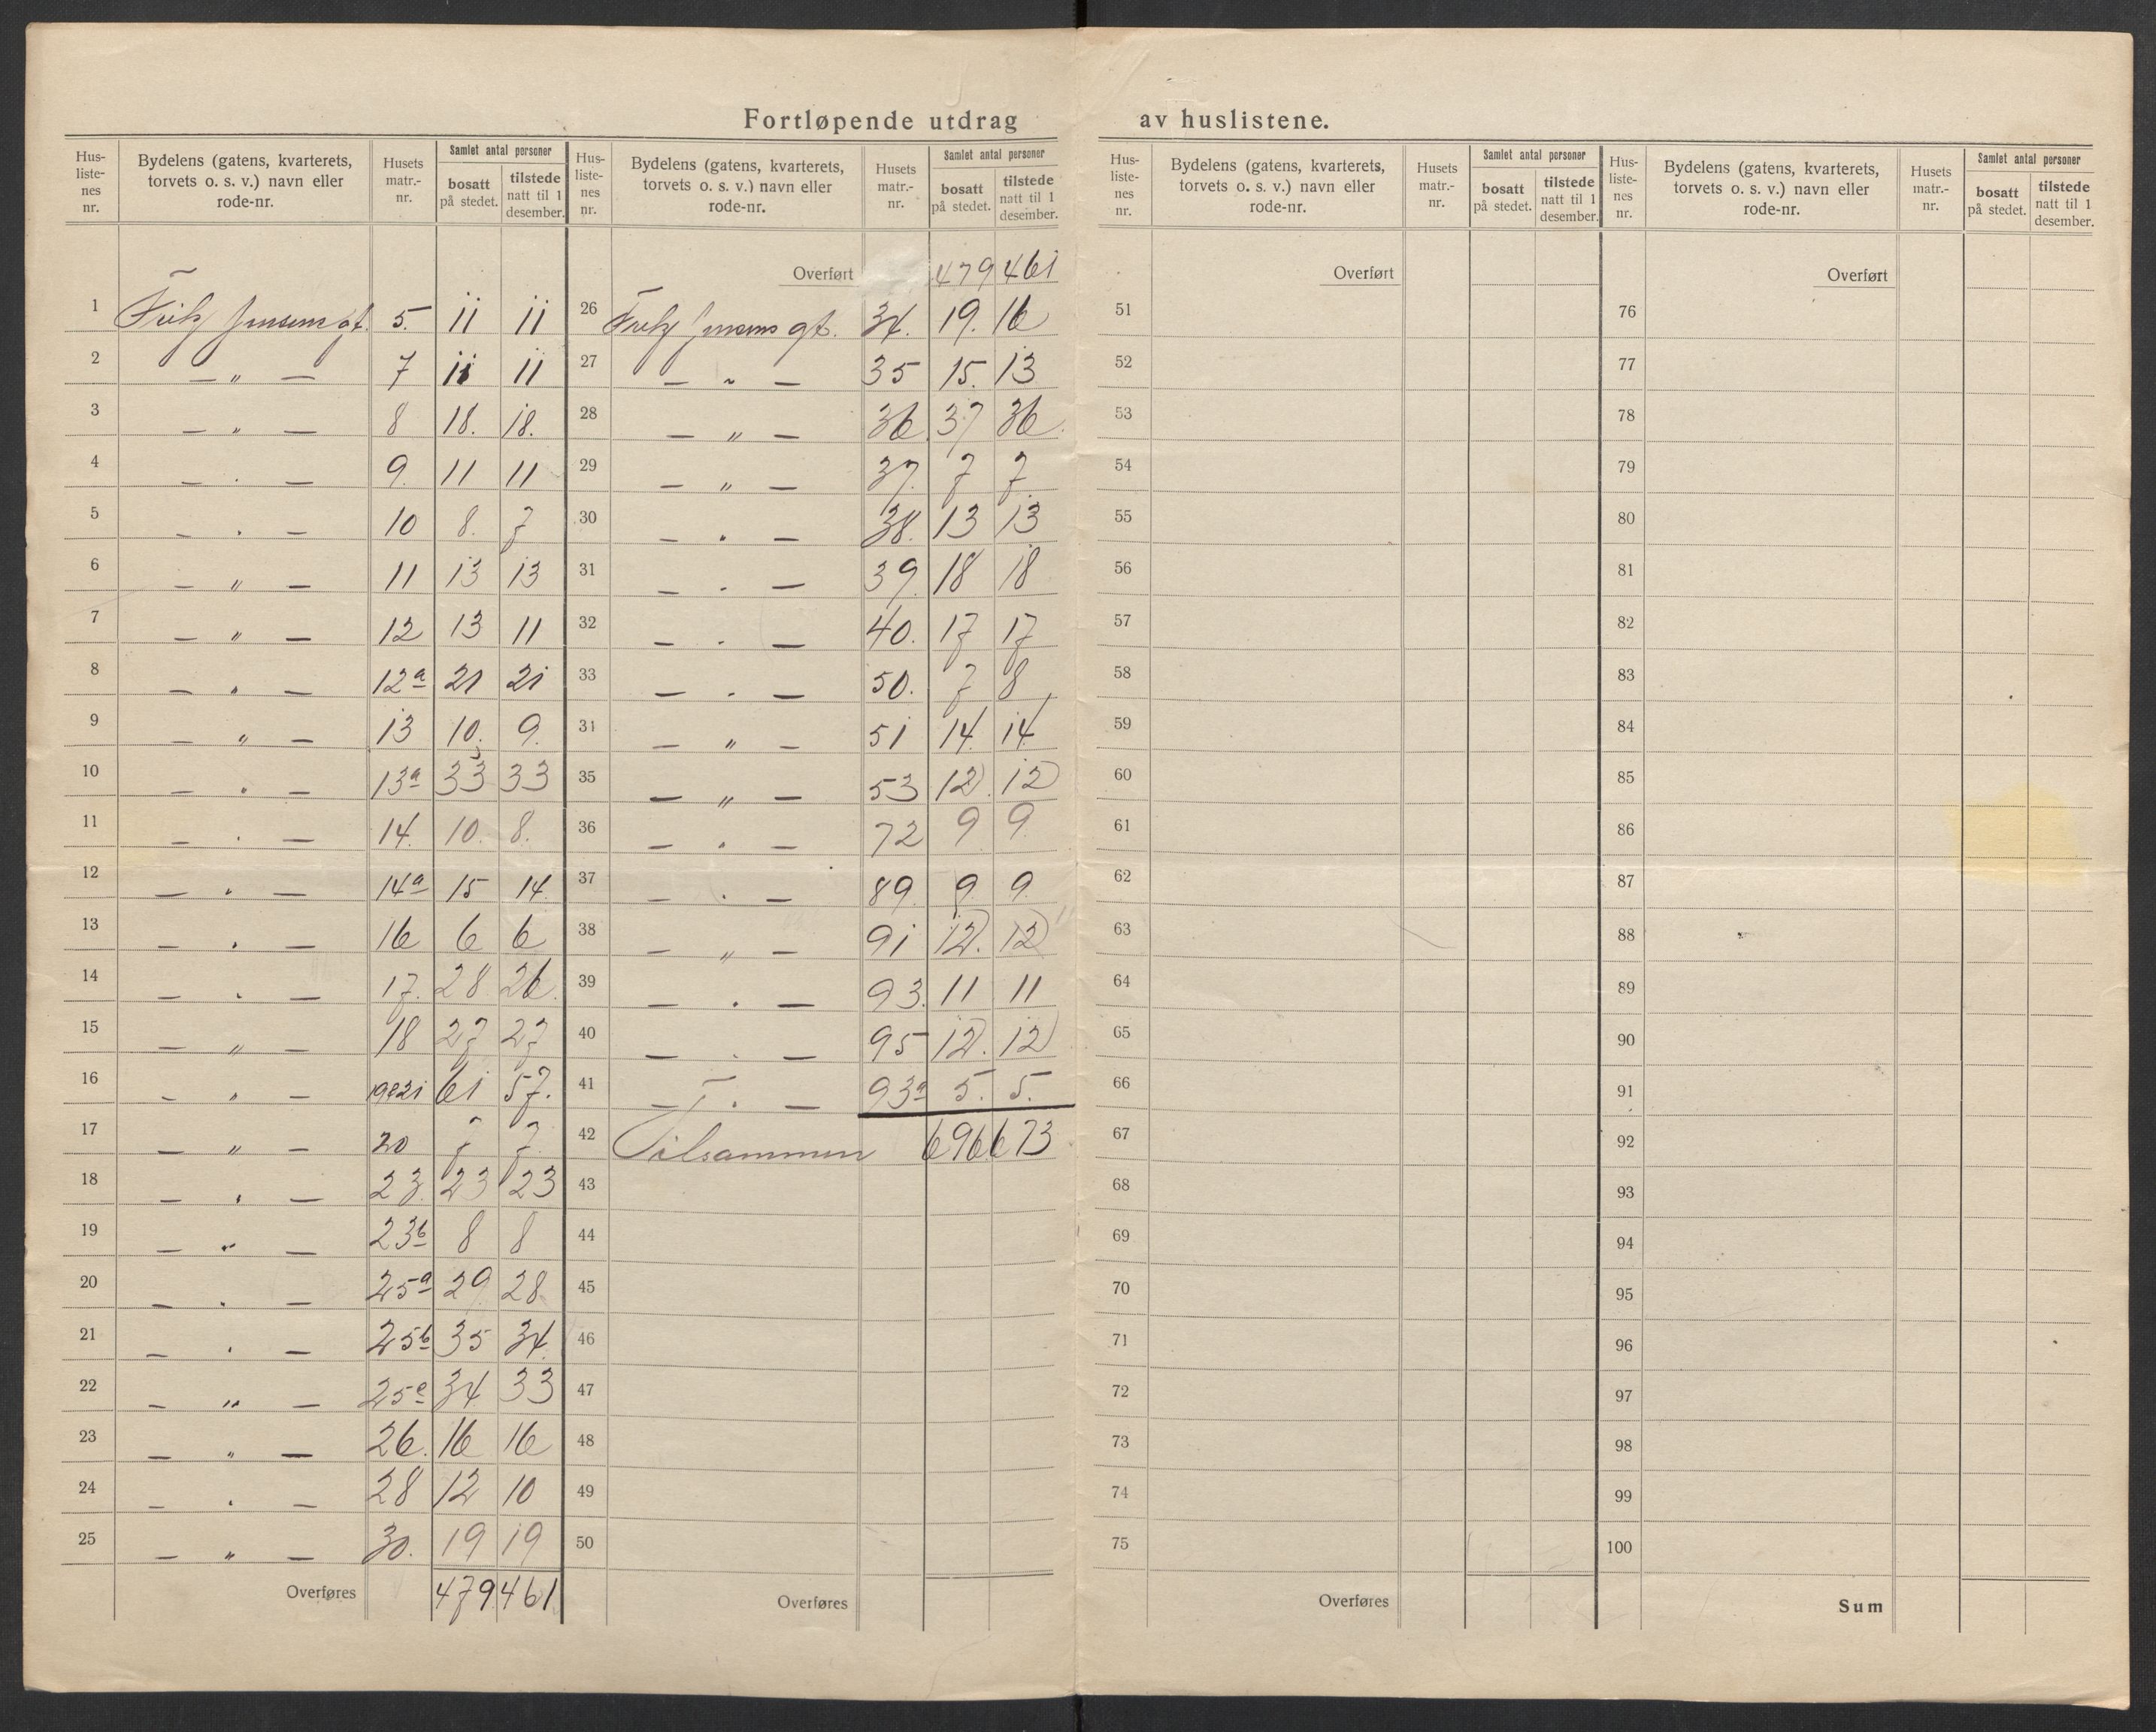 Fortløpende utdrag av huslistene.
Hus-listenes nr. | Bydelens (gatens, kvarterets, torvets o. s. v.) navn eller rode-nr. | Husets matr.-nr. | Samlet antal personer bosatt på stedet. | tilstede natt til 1 desember.
1 Fritz Jensens gt. 5. 11 11
2 — " — 7 11 11
3 — " — 8 18. 18.
4 — " — 9. 11 11
5 — " — 10 8. 7
6 — " — 11 13 13
7 — " — 12 13 11
8 — " — 12a 21 21
9 — " — 13 10. 9.
10 — " — 13a 33 33
11 — " — 14. 10. 8.
12 — " — 14a 15 14
13 — " — 16 6 6
14 — " — 17. 28 26.
15 — " — 18 27 27
16 — " — 19&21 61 57.
17 — " — 20 7 7
18 — " — 23. 23 23
19 — " — 23b 8 8
20 — " — 25a 29 28
21 — " — 25b 35 34
22 — " — 25c 34 33
23 — " — 26. 16 16
24 — " — 28 12 10
25 — " — 30. 19 19
Overføres 479 461
Hus-listenes nr. | Bydelens (gatens, kvarterets, torvets o. s. v.) navn eller rode-nr. | Husets matr.-nr. | Samlet antal personer bosatt på stedet. | tilstede natt til 1 desember.
Overført 479 461
26 Fritz Jensens gt. 34. 19. 16
27 — " — 35 15. 13
28 — " — 36 37 36.
29 — " — 37. 7 7
30 — " — 38. 13 13
31 — " — 39. 18 18
32 — " — 40. 17 17
33 — " — 50. 7 8
31 — " — 51 14. 14
35 — " — 53 12. 12
36 — " — 72 9 9
37 — " — 89. 9 9
38 — " — 91 12. 12
39 — " — 93. 11 11
40 — " — 95 12. 12
41 — " — 93a 5. 5.
42 Tilsammen 696 673
43
44
45
46
47
48
49
50
Overføres
Hus-listenes nr. | Bydelens (gatens, kvarterets, torvets o. s. v.) navn eller rode-nr. | Husets matr.-nr. | Samlet antal personer bosatt på stedet. | tilstede natt til 1 desember.
Overført
51
52
53
54
55
56
57
58
59
60
61
62
63
64
65
66
67
68
69
70
71
72
73
74
75
Overføres
Hus-listenes nr. | Bydelens (gatens, kvarterets, torvets o. s. v.) navn eller rode-nr. | Husets matr.-nr. | Samlet antal personer bosatt på stedet. | tilstede natt til 1 desember.
Overført
76
77
78
79
80
81
82
83
84
85
86
87
88
89
90
91
92
93
94
95
96
97
98
99
100
Sum